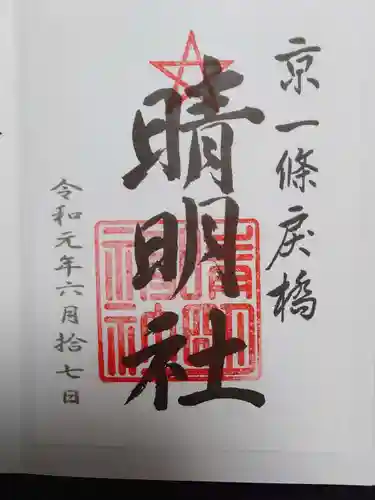 京一條戻橋
晴明社
令和元年六月拾七日
晴明
神社